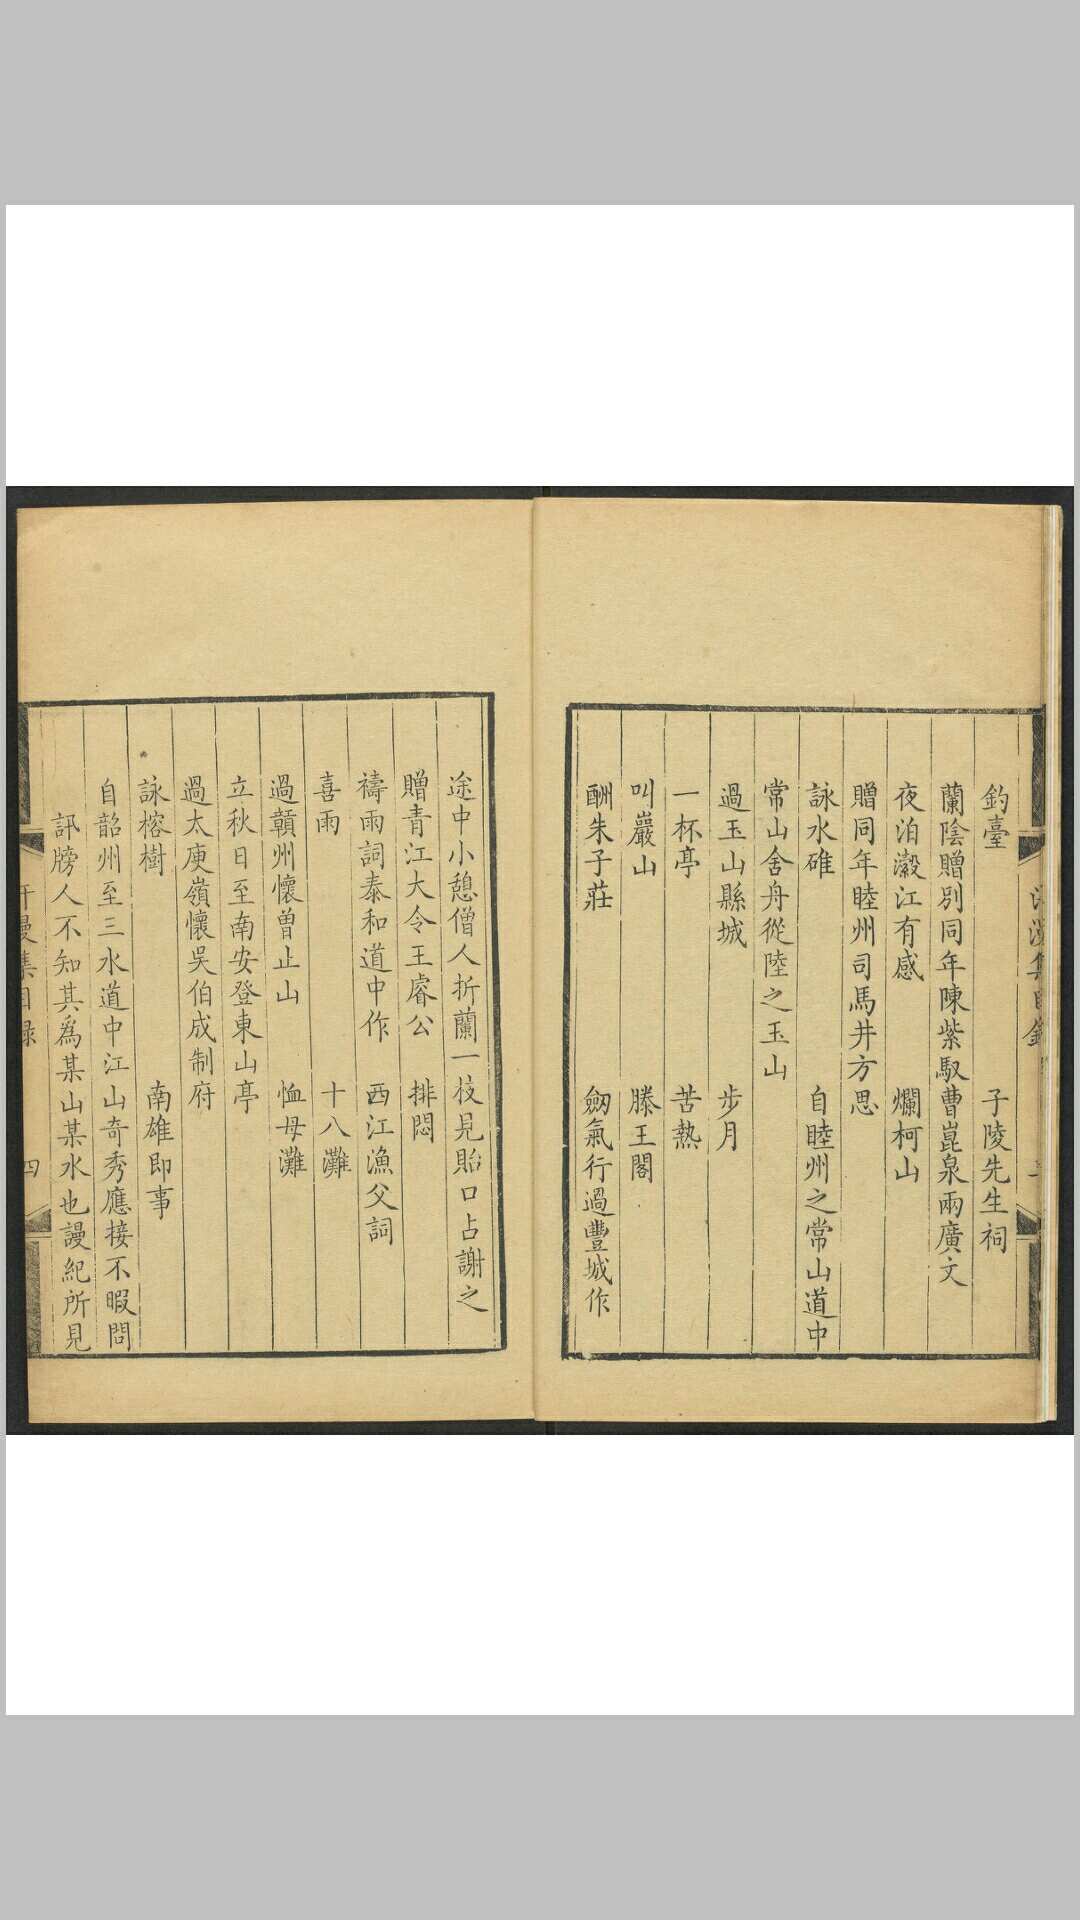 釣臺　子陵先生祠
蘭陰贈別同年陳紫馭曹崑泉兩廣文
夜泊瀫江有感　爛柯山
贈同年睦州司馬井方思
詠水碓　自睦州之常山道中
常山舍舟從陸之玉山
過玉山縣城　步月
一杯亭　苦熱
叫巖山　滕王閣
酬朱子莊　劔氣行過豐城作
途中小憩僧人折蘭一枝見貽口占謝之
贈青江大令王睿公　排悶
禱雨詞泰和道中作　西江漁父詞
喜雨　十八灘
過贛州懷曽止山　恤母灘
立秋日至南安登東山亭
過太庾嶺懷吳伯成制府
詠榕樹　南雄即事
自韶州至三水道中江山奇秀應接不暇問
訊牓人不知其爲某山某水也謾紀所見
集目録　四